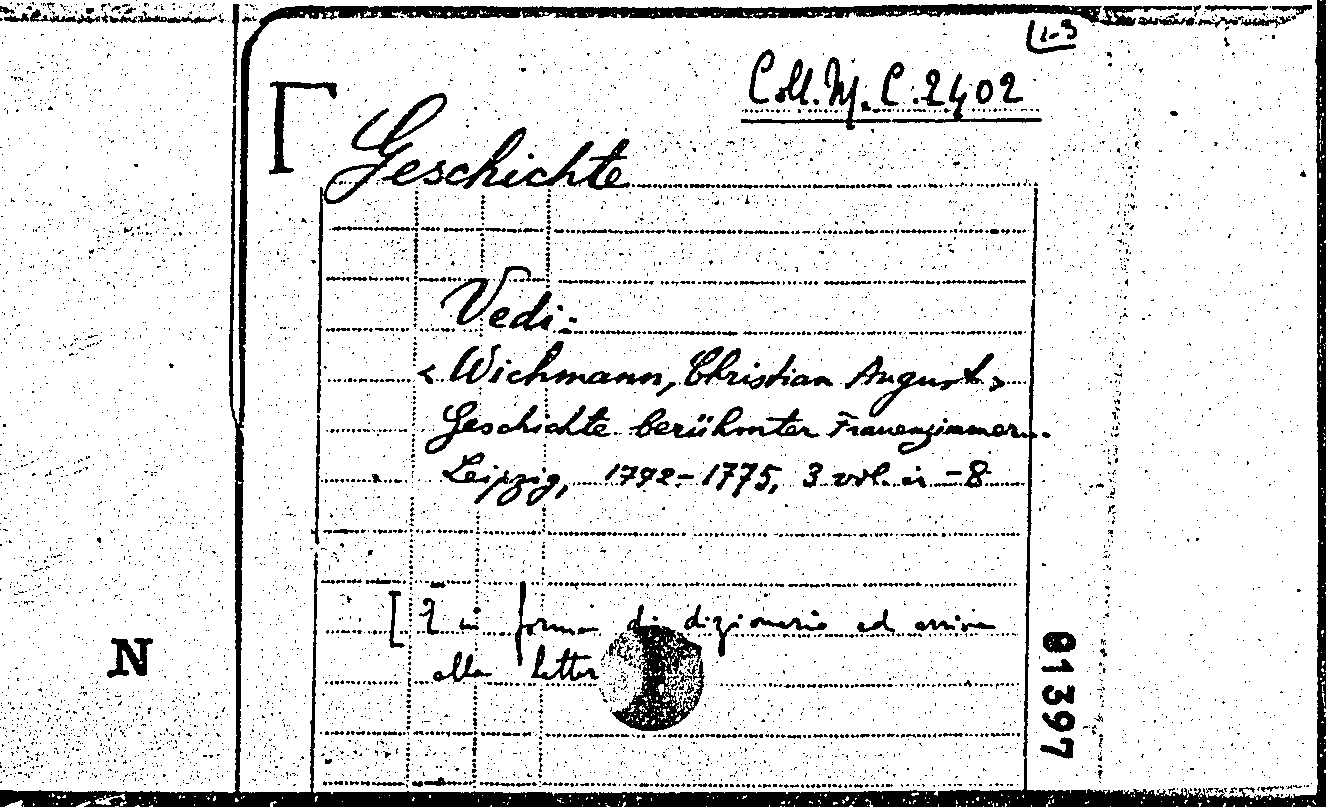 1-3
Coll. M. C. 2402
Geschichte
Vedi:
< Wichmann, Christian August >
Geschichte berühmter Frauenzimmer..
Leipzig, 1772-1775, 3 vol. in -8
[È in forma di dizionario ed arriva
alla letter
N
01397